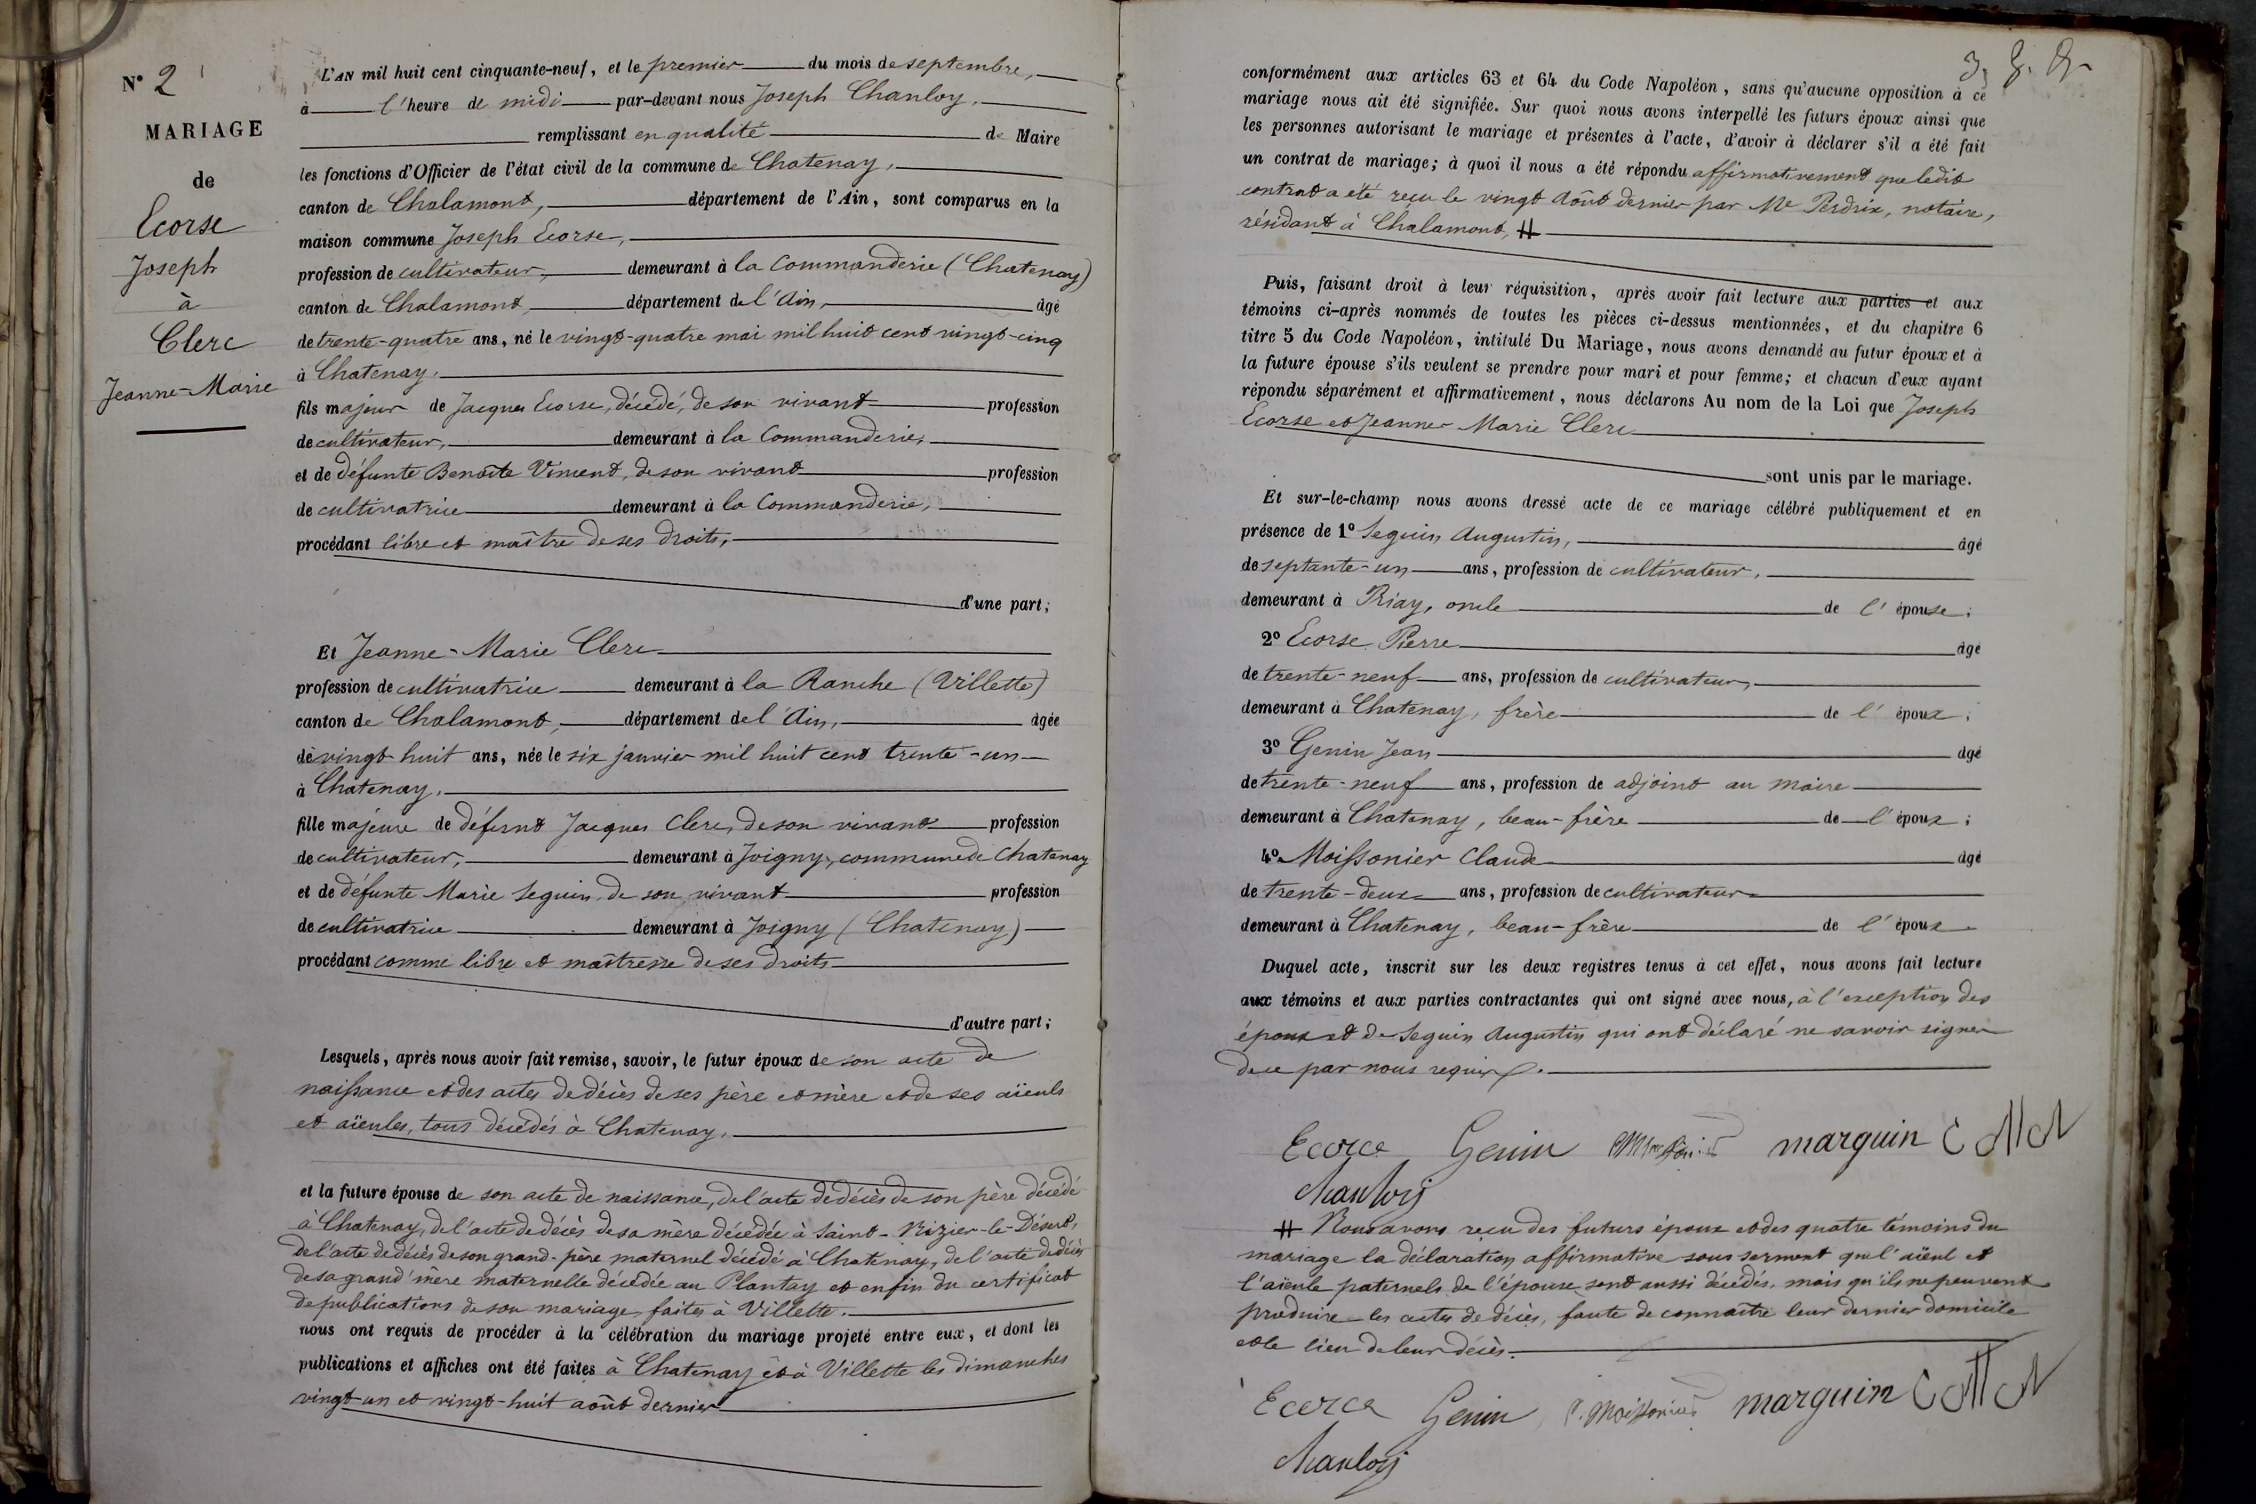 N° 2
MARIAGE
de
Ecorse
Joseph
à
Clerc
Jeanne-Marie
L'AN mil huit cent cinquante-neuf, et le premier du mois de septembre,
à l'heure de midi par-devant nous Joseph Chanloy,
remplissant en qualité de Maire
les fonctions d'Officier de l'état civil de la commune de Chatenay,
canton de Chalamont, département de l'Ain, sont comparus en la
maison commune Joseph Ecorse,
profession de cultivateur, demeurant à la Commanderie (Chatenay)
canton de Chalamont, département de l'Ain, âgé
de trente-quatre ans, né le vingt-quatre mai mil huit cent vingt-cinq
à Chatenay,
fils majeur de Jacques Ecorse, décédé, de son vivant profession
de cultivateur, demeurant à la Commanderie,
et de défunte Benoîte Viment, de son vivant profession
de cultivatrice demeurant à la Commanderie,
procédant libre et maître de ses droits,
d'une part;
Et Jeanne-Marie Clerc
profession de cultivatrice demeurant à la Ranche (Villette)
canton de Chalamont, département de l'Ain, âgée
de vingt-huit ans, née le six janvier mil huit cent trente-un
à Chatenay,
fille majeure de défunt Jacques Clerc, de son vivant profession
de cultivateur, demeurant à Joigny, commune de Chatenay
et de défunte Marie Seguin de son vivant profession
de cultivatrice demeurant à Joigny (Chatenay)
procédant comme libre et maîtresse de ses droits
d'autre part;
Lesquels, après nous avoir fait remise, savoir, le futur époux de son acte de
naissance et des actes de décès de ses père et mère et de ses aïeuls
et aïeules, tous décédés à Chatenay,
et la future épouse de son acte de naissance, de l'acte de décès de son père décédé
à Chatenay, de l'acte de décès de sa mère décédée à Saint-Nizier-le-Désert,
de l'acte de décès de son grand-père maternel décédé à Chatenay, de l'acte de décès
de sa grand'mère maternelle décédée au Plantay et enfin du certificat
de publications de son mariage faites à Villette.
nous ont requis de procéder à la célébration du mariage projeté entre eux, et dont les
publications et affiches ont été faites à Chatenay et à Villette les dimanches
vingt-un et vingt-huit août dernier
conformément aux articles 63 et 64 du Code Napoléon, sans qu'aucune opposition à ce
mariage nous ait été signifiée. Sur quoi nous avons interpellé les futurs époux ainsi que
les personnes autorisant le mariage et présentes à l'acte, d'avoir à déclarer s'il a été fait
un contrat de mariage; à quoi il nous a été répondu affirmativement que ledit
contrat a été reçu le vingt Août dernier par Me Perdrix, notaire,
résidant à Chalamont, #
Puis, faisant droit à leur réquisition, après avoir fait lecture aux parties et aux
témoins ci-après nommés de toutes les pièces ci-dessus mentionnées, et du chapitre 6
titre 5 du Code Napoléon, intitulé Du Mariage, nous avons demandé au futur époux et à
la future épouse s'ils veulent se prendre pour mari et pour femme; et chacun d'eux ayant
répondu séparément et affirmativement, nous déclarons Au nom de la Loi que Joseph
Ecorse et Jeanne-Marie Clerc
sont unis par le mariage.
Et sur-le-champ nous avons dressé acte de ce mariage célébré publiquement et en
présence de 1° Seguin Augustin, âgé
de septante-un ans, profession de cultivateur,
demeurant à Priay, oncle de l'épouse;
2° Ecorse Pierre âgé
de trente-neuf ans, profession de cultivateur,
demeurant à Chatenay, frère de l'époux;
3° Genin Jean âgé
de trente-neuf ans, profession de adjoint au Maire
demeurant à Chatenay, beau-frère de l'époux;
4° Moissonier Claude âgé
de trente-deux ans, profession de cultivateur
demeurant à Chatenay, beau-frère de l'époux
Duquel acte, inscrit sur les deux registres tenus à cet effet, nous avons fait lecture
aux témoins et aux parties contractantes qui ont signé avec nous, à l'exception des
époux et de Seguin Augustin qui ont déclaré ne savoir signer
de ce par nous requis.
Ecorce Genin marguin
Chanloy
# Nous avons reçu des futurs époux et des quatre témoins du
mariage la déclaration affirmative sous serment que l'aïeul et
l'aïeule paternels de l'épouse sont aussi décédés, mais qu'ils ne peuvent
produire les actes de décès, faute de connaître leur dernier domicile
et le lieu de leur décès.
Ecorce Genin C. Moissonier marguin
Chanloy